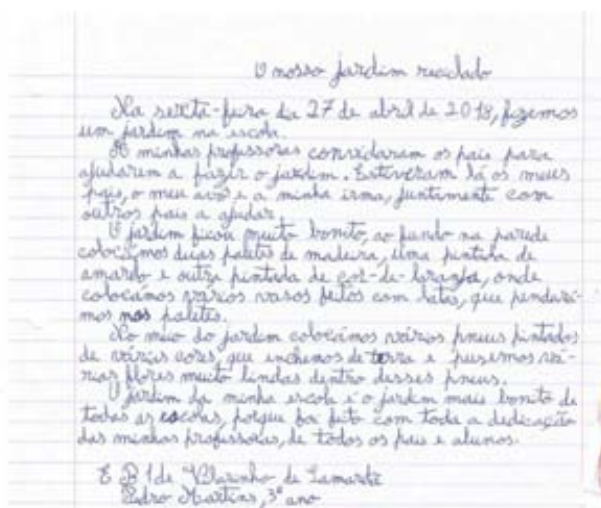 O nosso jardim reciclado
Na sexta-feira dia 27 de abril de 2018, fizemos
um jardim na escola.
As minhas professoras convidaram os pais para
ajudarem a fazer o jardim. Estiveram lá os meus
pais, o meu avô e a minha irma, juntamente com
outros pais a ajudar.
O jardim ficou muito bonito, ao fundo na parede
colocámos duas paletes de madeira, uma pintada de
amarelo e outra pintada de cor-de-laranja, onde
colocámos vários vasos feitos com latas, que pendurá-
mos nas paletes.
No meio do jardim colocámos vários pneus pintados
de várias cores, que enchemos de terra e pusemos vá-
rias flores muito lindas dentro desses pneus.
O jardim da minha escola é o jardim mais bonito de
todas as escolas, porque foi feito com toda a dedicação
das minhas professoras, de todos os pais e alunos.
E B 1 de Vilarinho de Samardã
Pedro Martins, 3º ano